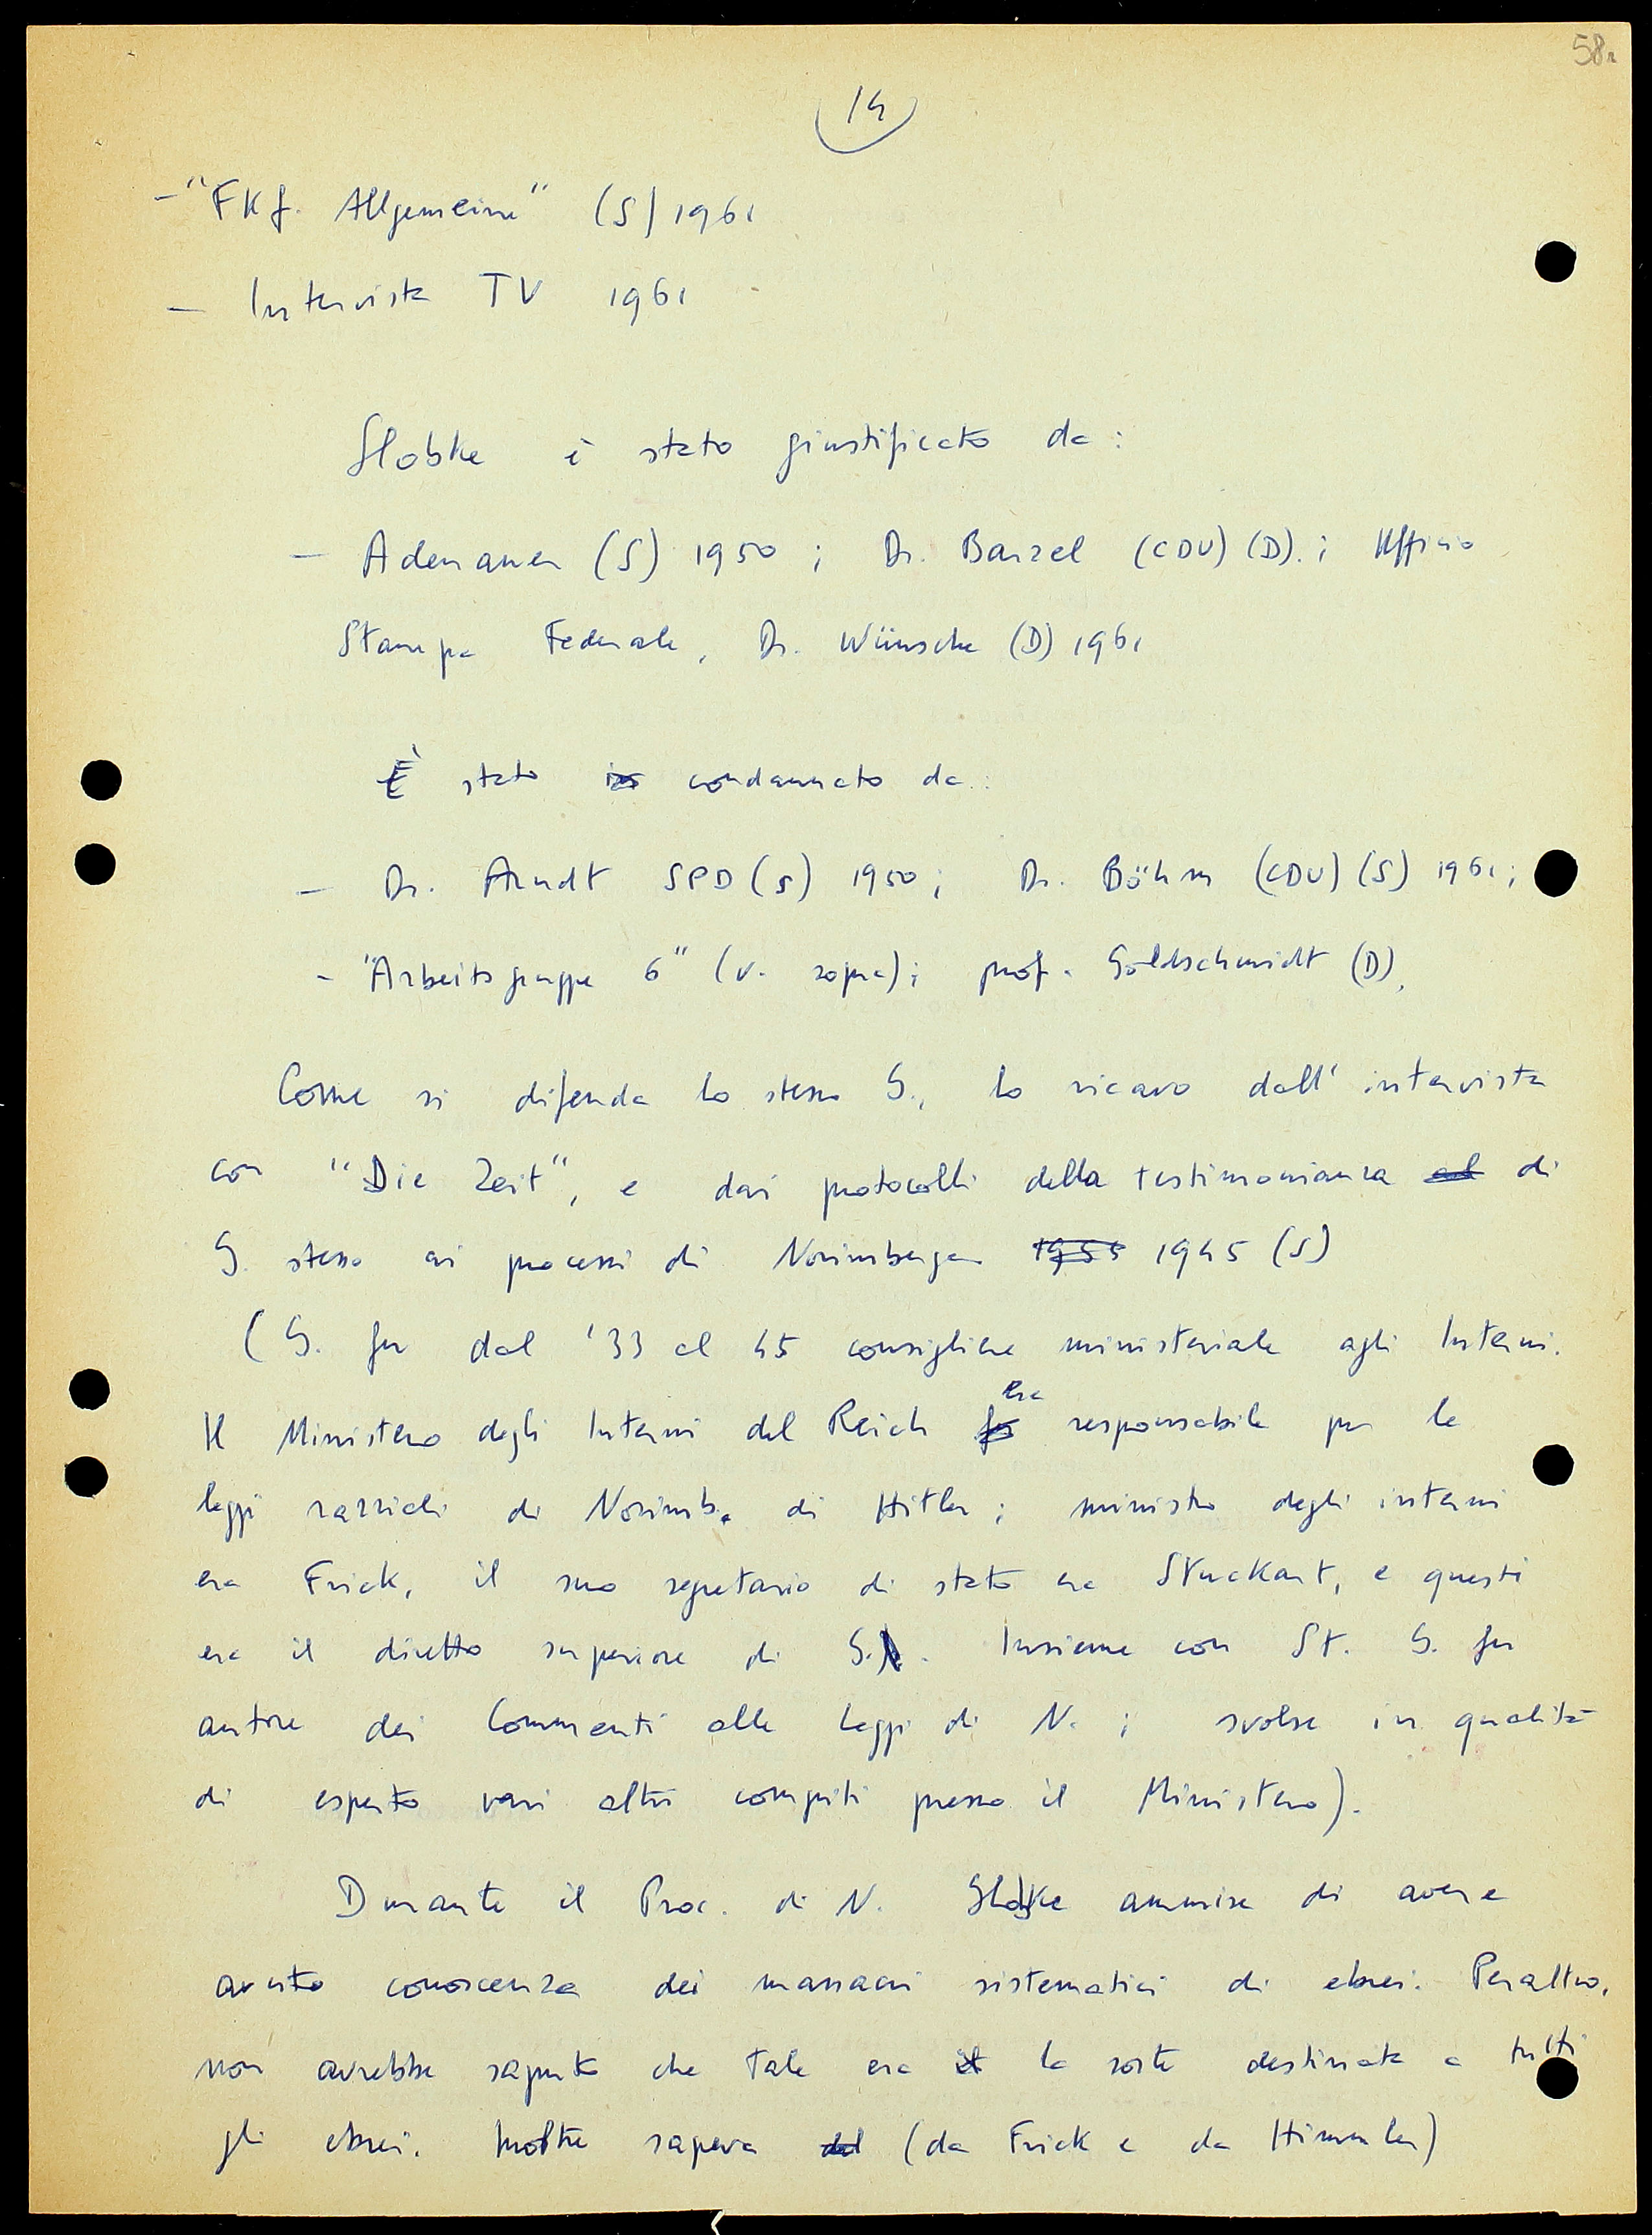 58r
14
- "FKf. Allgemeine" (S) 1961
- Intervista TV 1961
Globke è stato giustificato da:
- Adenauer (S) 1950; Dr. Barzel (CDU) (D).; Ufficio
Stampa Federale, Dr. Wünsche (D) 1961
È stato condannato da:
- Dr. Arndt SPD (S) 1950; Dr. Böhm (CDU) (S) 1961;
- "Arbeitsgruppe 6" (v. sopra); prof. Goldschmidt (D),
Come si difenda lo stesso G., lo ricavo dall'intervista
con "Die Zeit", e dai protocolli della testimonianza di
G. stesso ai processi di Norimberga 1955 1945 (S)
(G. fu dal '33 al 45 consigliere ministeriale agli Interni.
Il Ministero degli Interni del Reich era responsabile per le
leggi razziali di Norimb. di Hitler; ministro degli interni
era Frick, il suo segretario di stato era Stuckart, e questi
era il diretto superiore di G. Insieme con St. G. fu
autore dei Commenti alle leggi di N.; svolse in qualità
di esperto vari altri compiti presso il Ministero).
Durante il Proc. di N. Globke ammise di avere
avuto conoscenza dei massacri sistematici di ebrei. Peraltro,
non avrebbe saputo che tale era la sorte destinata a tutti
gli ebrei. Inoltre sapeva (da Frick e da Himmler)